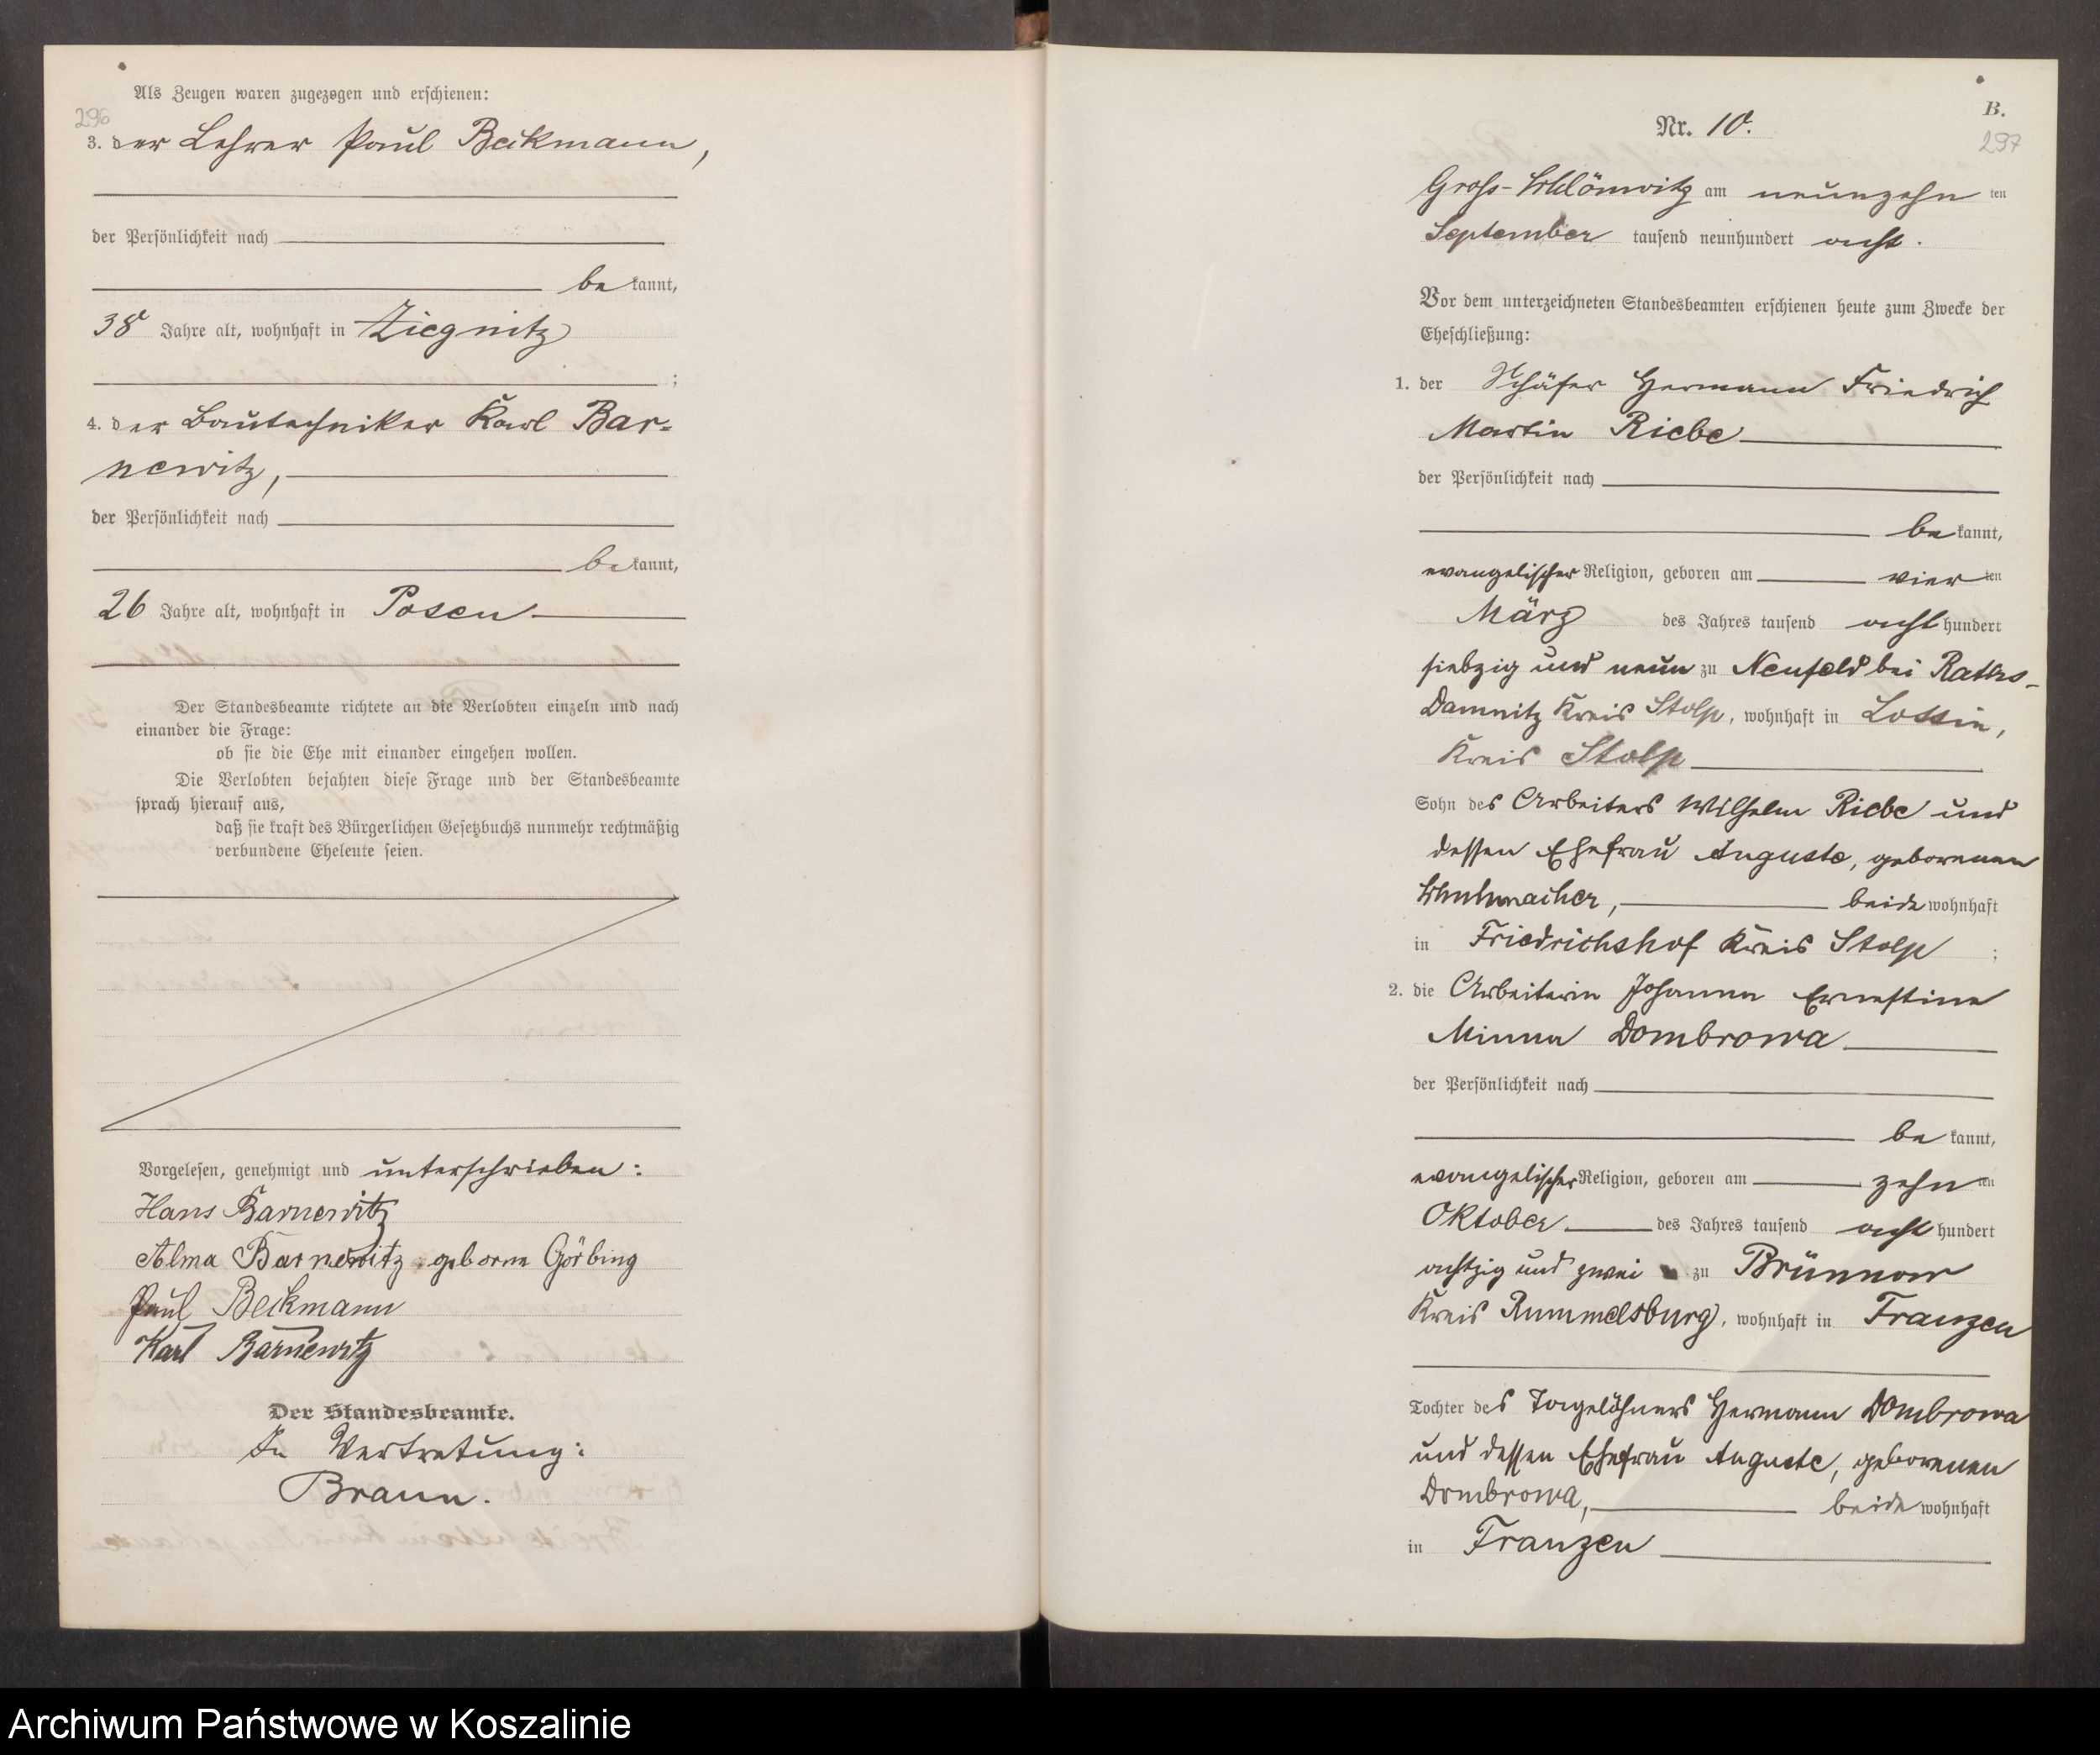 Als Zeugen waren zugezogen und erschienen:
296
3. der Lehrer Paul Beckmann,
der Persönlichkeit nach
be kannt,
38 Jahre alt, wohnhaft in Ziegnitz
;
4. der Bautechniker Karl Bar-
newitz,
der Persönlichkeit nach
be kannt,
26 Jahre alt, wohnhaft in Posen
Der Standesbeamte richtete an die Verlobten einzeln und nach
einander die Frage:
ob sie die Ehe mit einander eingehen wollen.
Die Verlobten bejahten diese Frage und der Standesbeamte
sprach hierauf aus,
daß sie kraft des Bürgerlichen Gesetzbuchs nunmehr rechtmäßig
verbundene Eheleute seien.
Vorgelesen, genehmigt und unterschrieben:
Hans Barnewitz
Alma Barnewitz geborne Görbing
Paul Beckmann
Karl Barnewitz
Der Standesbeamte.
In Vertretung:
Braun.
B.
Nr. 10.
297
Gross-Schlönwitz am neunzehn ten
September tausend neunhundert acht.
Vor dem unterzeichneten Standesbeamten erschienen heute zum Zwecke der
Eheschließung:
1. der Schäfer Hermann Friedrich
Martin Riebe
der Persönlichkeit nach
be kannt,
evangelischer Religion, geboren am vier ten
März des Jahres tausend acht hundert
siebzig und neun zu Neufeld bei Raths-
Damnitz Kreis Stolp, wohnhaft in Lossin,
Kreis Stolp
Sohn des Arbeiters Wilhelm Riebe und
dessen Ehefrau Auguste, geborenen
Schuhmacher, beide wohnhaft
in Friedrichshof Kreis Stolp ;
2. die Arbeiterin Johanna Ernestine
Minna Dombrowa
der Persönlichkeit nach
be kannt,
evangelischer Religion, geboren am zehn ten
Oktober des Jahres tausend acht hundert
achtzig und zwei zu Brünnow
Kreis Rummelsburg, wohnhaft in Franzen
Tochter des Tagelöhners Hermann Dombrowa
und dessen Ehefrau Auguste, geborenen
Dombrowa, beide wohnhaft
in Franzen
Archiwum Państwowe w Koszalinie